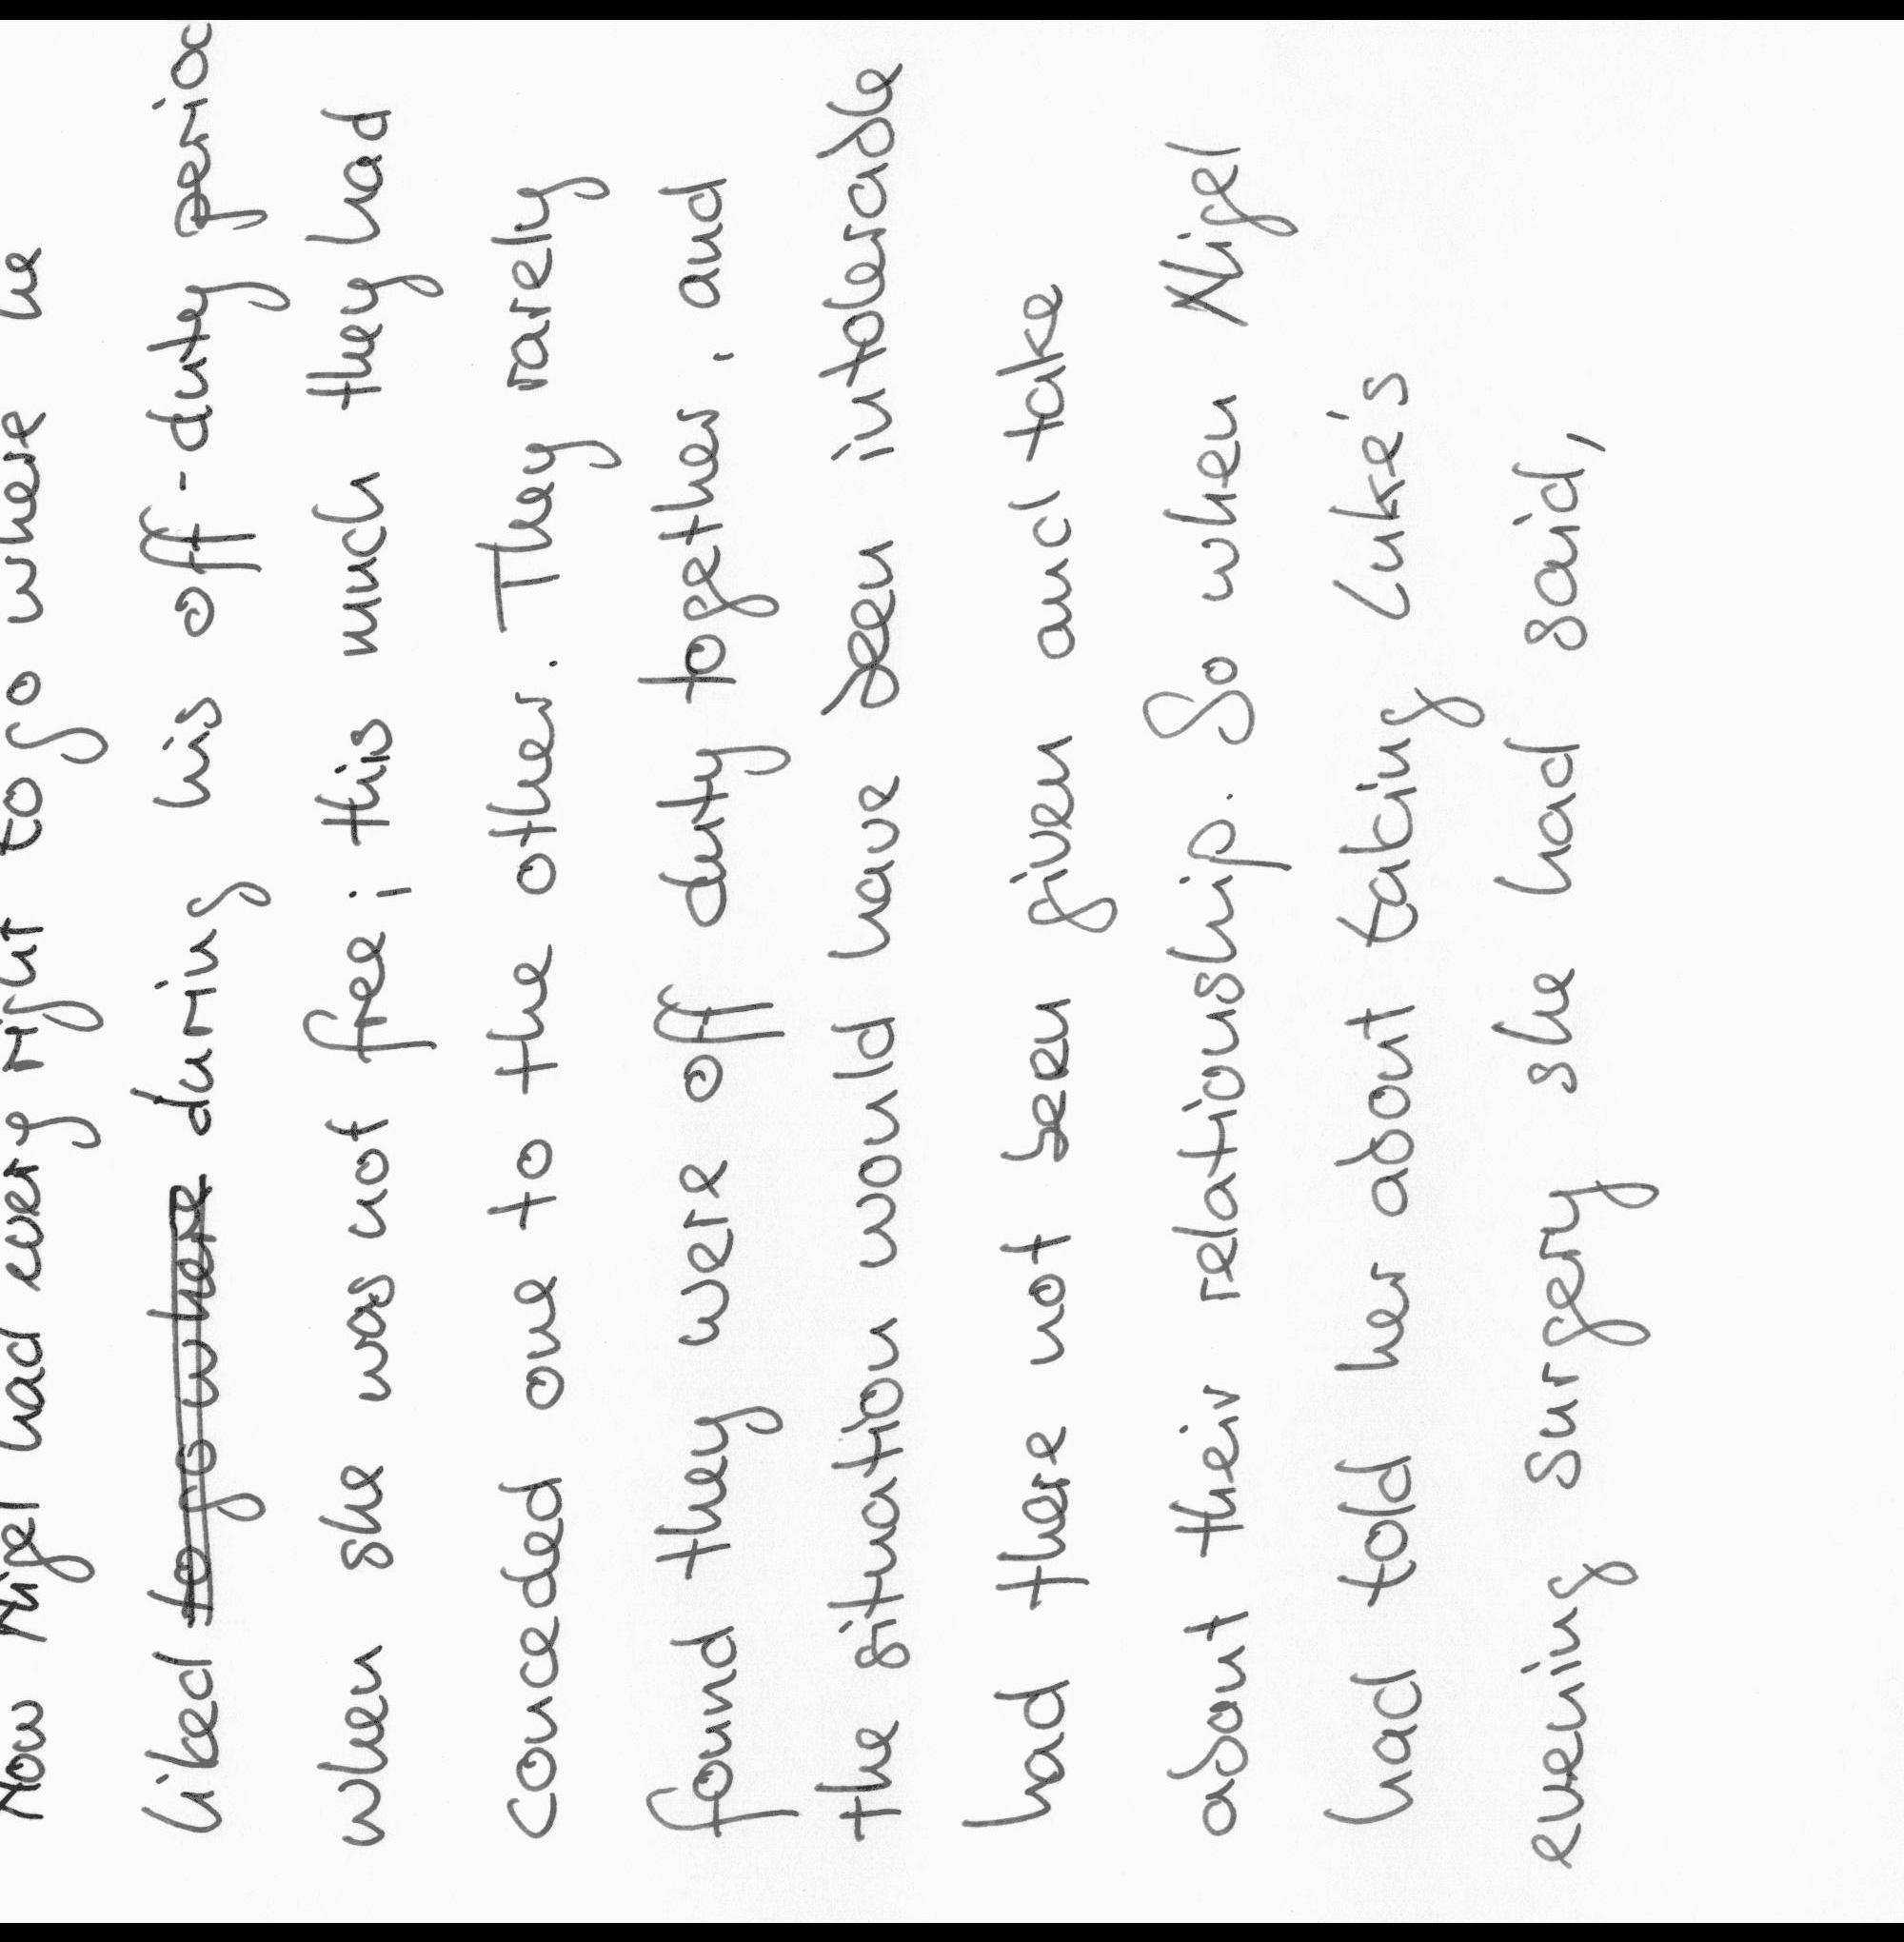 Now Nigel had every right to go where he
liked to go where during his off-duty period
when she was not free; this much they had
conceded one to the other. They rarely
found they were off duty together, and
the situation would have been intolerable
had there not been given and take
about their relationship. So when Nigel
had told her about taking Luke's
evening surgery she had said,